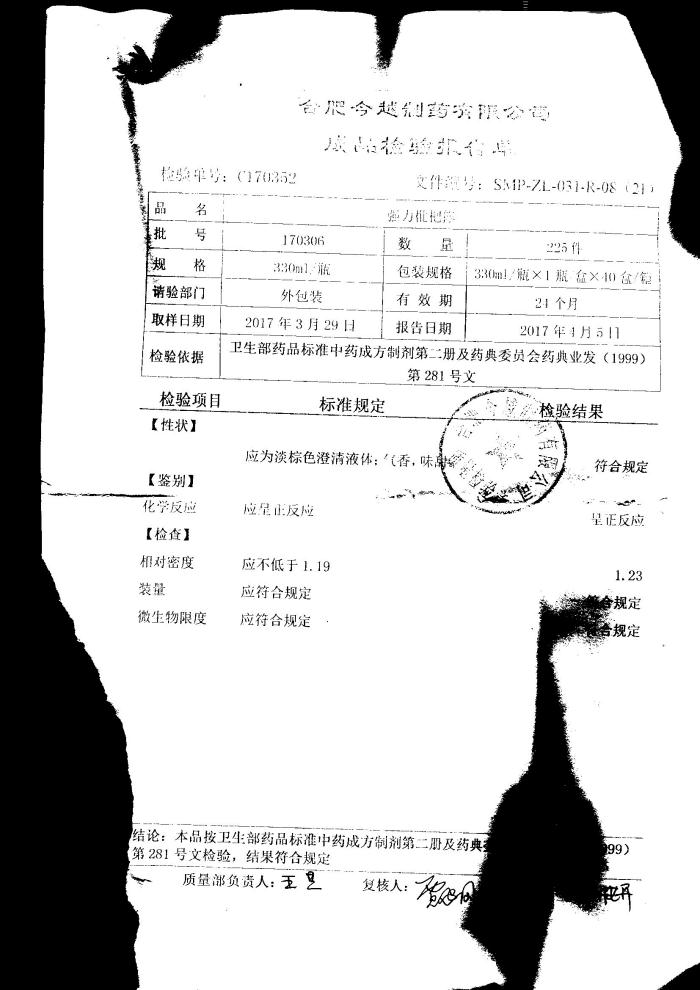 合肥今越制药有限公司
成品检验报告单
检验单号：C170352 文件编号：SMP-ZL-031-R-08（21）
品 名 强力枇杷露
批 号 170306 数 量 225件
规 格 330ml/瓶 包装规格 330ml/瓶×1瓶/盒×40盒/箱
请验部门 外包装 有 效 期 24个月
取样日期 2017年3月29日 报告日期 2017年4月5日
检验依据 卫生部药品标准中药成方制剂第二册及药典委员会药典业发（1999）
第281号文
检验项目 标准规定 检验结果
【性状】
应为淡棕色澄清液体；气香，味甜 符合规定
【鉴别】
化学反应 应呈正反应 呈正反应
【检查】
相对密度 应不低于1.19 1.23
装量 应符合规定 符合规定
微生物限度 应符合规定 符合规定
结论：本品按卫生部药品标准中药成方制剂第二册及药典 99）
第281号文检验，结果符合规定
质量部负责人： 复核人：